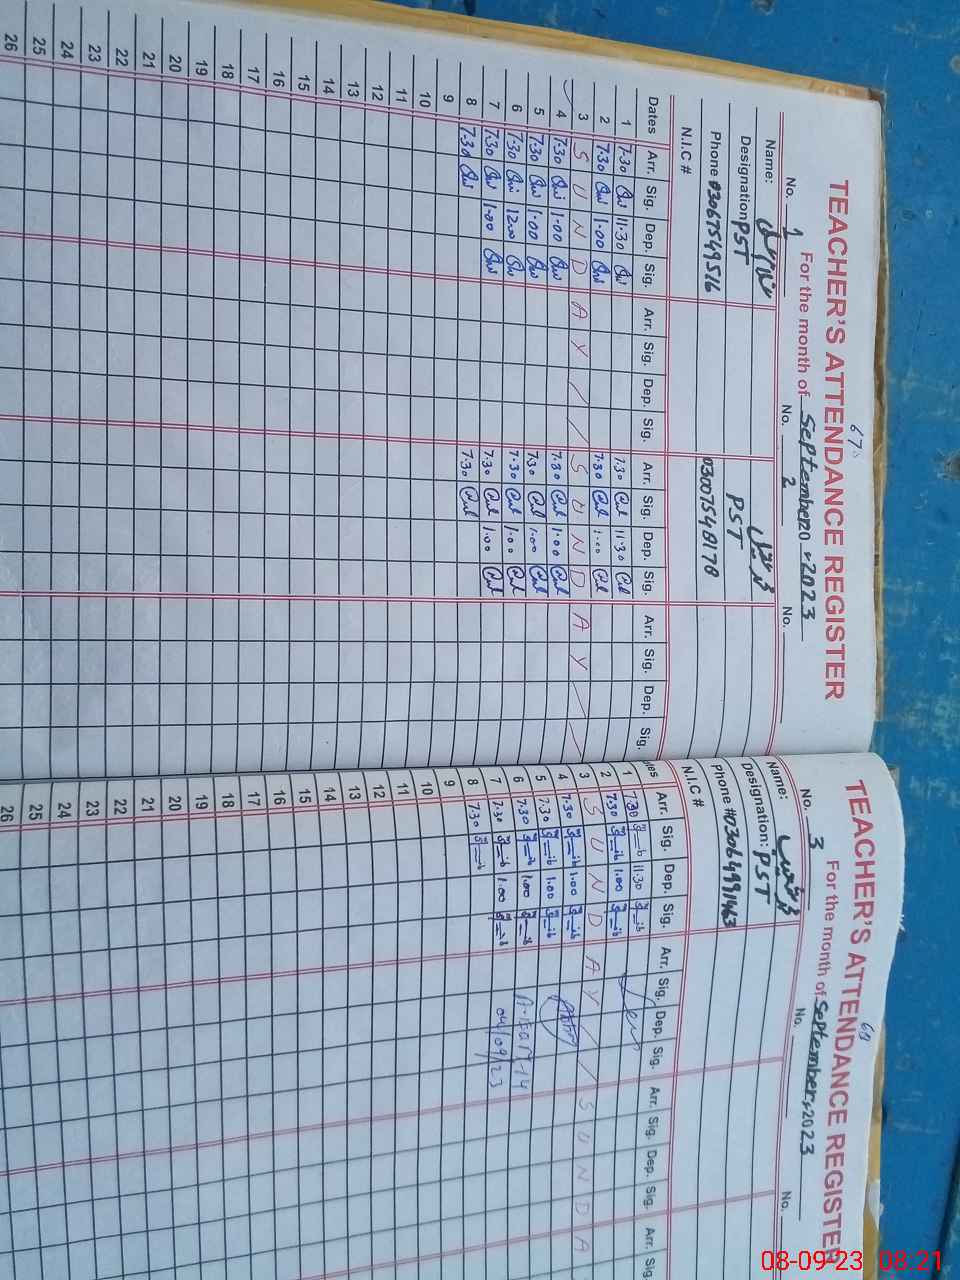 67
TEACHER'S ATTENDANCE REGISTER
For the month of September 20 2023
No. 1 No. 2 No.
Name:
Designation PST PST
Phone # 03067549516 03007548178
N.I.C #
Dates Arr. Sig. Dep. Sig. Arr. Sig. Dep. Sig. Arr. Sig. Dep. Sig. Arr. Sig. Dep. Sig.
1 7.30 11.30 7.30 11.30
2 7.30 1.00 7.30 1.00
3 S U N D A Y / / S U N D A Y / /
4 7.30 1.00 7.30 1.00
5 7.30 1.00 7.30 1.00
6 7.30 12.00 7.30 1.00
7 7.30 1.00 7.30 1.00
8 7.30 7.30
9
10
11
12
13
14
15
16
17
18
19
20
21
22
23
24
25
26
68
TEACHER'S ATTENDANCE REGISTER
For the month of September, 2023
No. 3 No. No.
Name:
Designation: PST
Phone # 03064991463
N.I.C #
Arr. Sig. Dep. Sig. Arr. Sig. Dep. Sig. Arr. Sig. Dep. Sig. Arr. Sig.
1 7.30 11.30
2 7.30 1.00
3 S U N D A Y / / S U N D A
4 7.30 1.00
5 7.30 1.00
6 7.30 1.00
7 7.30 1.00 04/09/23
8 7.30
9
10
11
12
13
14
15
16
17
18
19
20
21
22
23
24
25
26
08-09-23 08:21